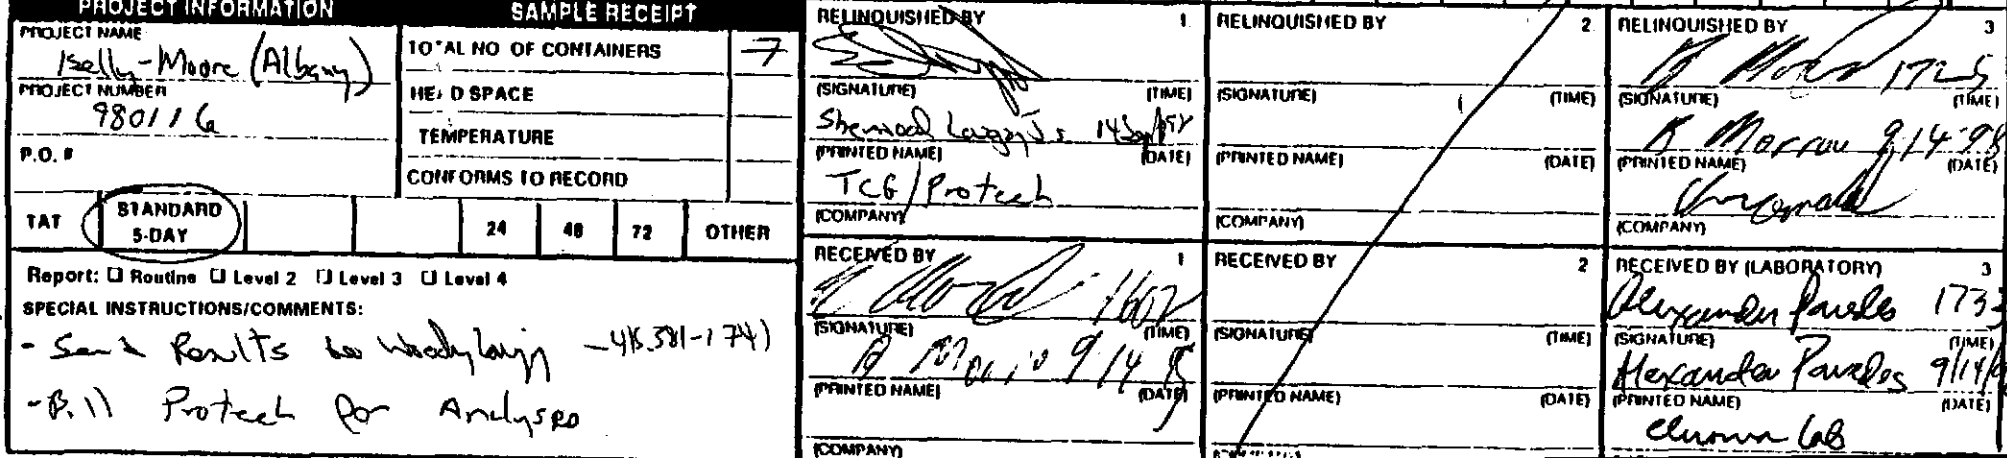 PROJECT INFORMATION
PROJECT NAME
Kelly-Moore (Albany)
PROJECT NUMBER
980116
P.O. #
SAMPLE RECEIPT
TOTAL NO OF CONTAINERS 7
HEAD SPACE
TEMPERATURE
CONFORMS TO RECORD
TAT STANDARD 5-DAY 24 48 72 OTHER
Report: ☐ Routine ☐ Level 2 ☐ Level 3 ☐ Level 4
SPECIAL INSTRUCTIONS/COMMENTS:
- Send Results to Woody - 415.381-1741
- Bill Protech for Analyses
RELINQUISHED BY 1
(SIGNATURE) (TIME)
14 Sep/98
(PRINTED NAME) (DATE)
TCG/Protech
(COMPANY)
RECEIVED BY 1
1602
(SIGNATURE) (TIME)
9 14
(PRINTED NAME) (DATE)
(COMPANY)
RELINQUISHED BY 2
(SIGNATURE) (TIME)
(PRINTED NAME) (DATE)
(COMPANY)
RECEIVED BY 2
(SIGNATURE) (TIME)
(PRINTED NAME) (DATE)
RELINQUISHED BY 3
1725
(SIGNATURE) (TIME)
Morrow 9-14-98
(PRINTED NAME) (DATE)
(COMPANY)
RECEIVED BY (LABORATORY) 3
Alexander Paredes 1733
(SIGNATURE) (TIME)
Alexander Paredes 9/14/9
(PRINTED NAME) (DATE)
Lab